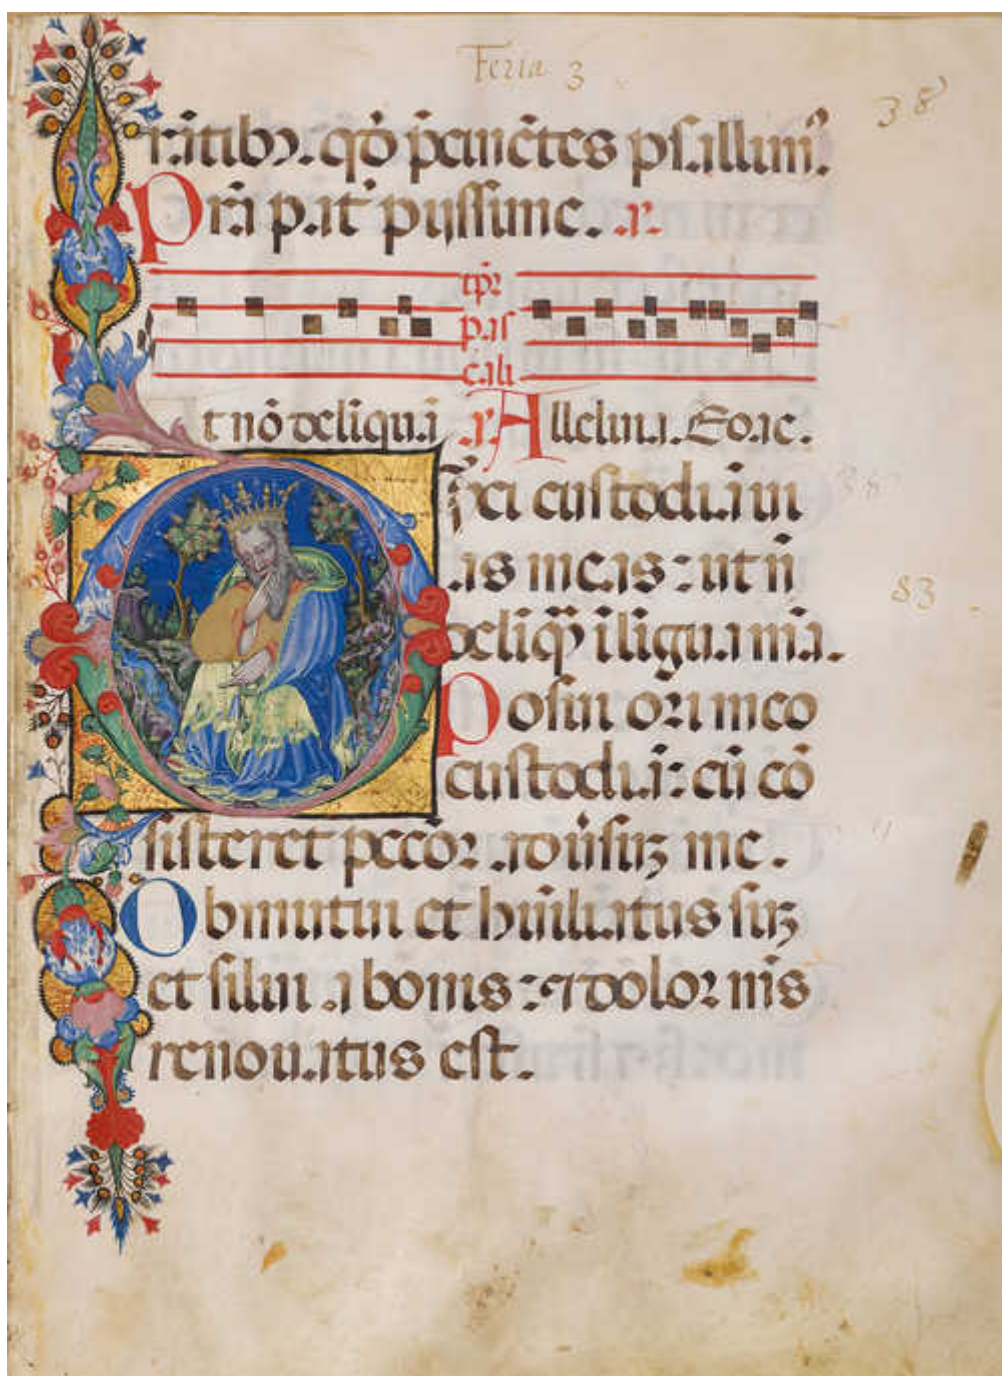 Feria 3
38
rātibꝫ. qđ p̄cunctes psallim᷒.
Prā pat̄ pijssime. r.
tp̄r
pas
cali
t nō deliqua r Alleluia. Eoae.
ixi custodiam ui
as meas: ut nō
delīqꝫ ī ligua mea.
Posui ori meo
custodiā: cū cō
sisteret peccōr aduersuꝫ me.
Obmutui et humiliatus suꝫ
et silui a bonis: ⁊ dolor meus
renouatus est.
38
83